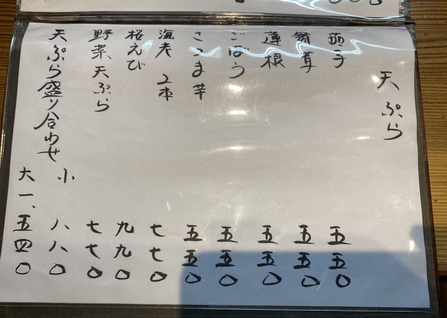 天ぷら
茄子 五五〇
舞茸 五五〇
蓮根 五五〇
ごぼう 五五〇
さつま芋 五五〇
海老 2本 七七〇
桜えび 九九〇
野菜天ぷら 七七〇
天ぷら盛り合わせ 小 八八〇
大 一、五四〇